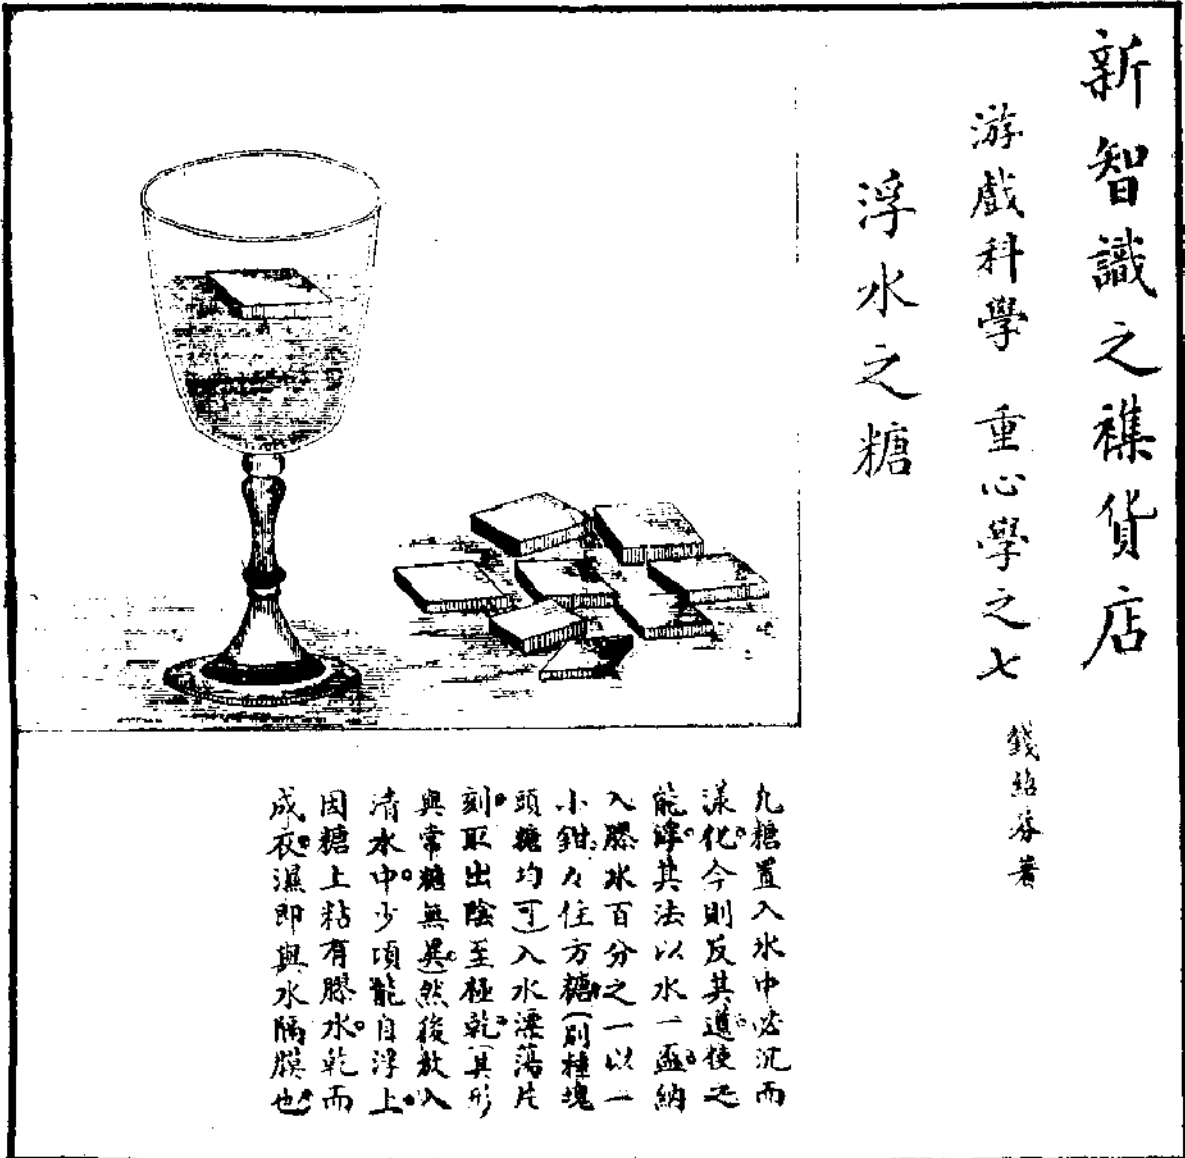 新智識之襍貨店
游戲科學 重心學之七
錢紹芬著
浮水之糖
凡糖置入水中必沉而
漾化。今則反其道。使之
能浮。其法以水一盃。納
入膠水百分之一以一
小鉗。々住方糖。(別種塊
頭糖均可)入水漂蕩片
刻。取出陰至極乾。(其形
與常糖無異)。然後放入
清水中。少頃能自浮上。
因糖上粘有膠水。乾而
成衣。濕即與水隔膜也。